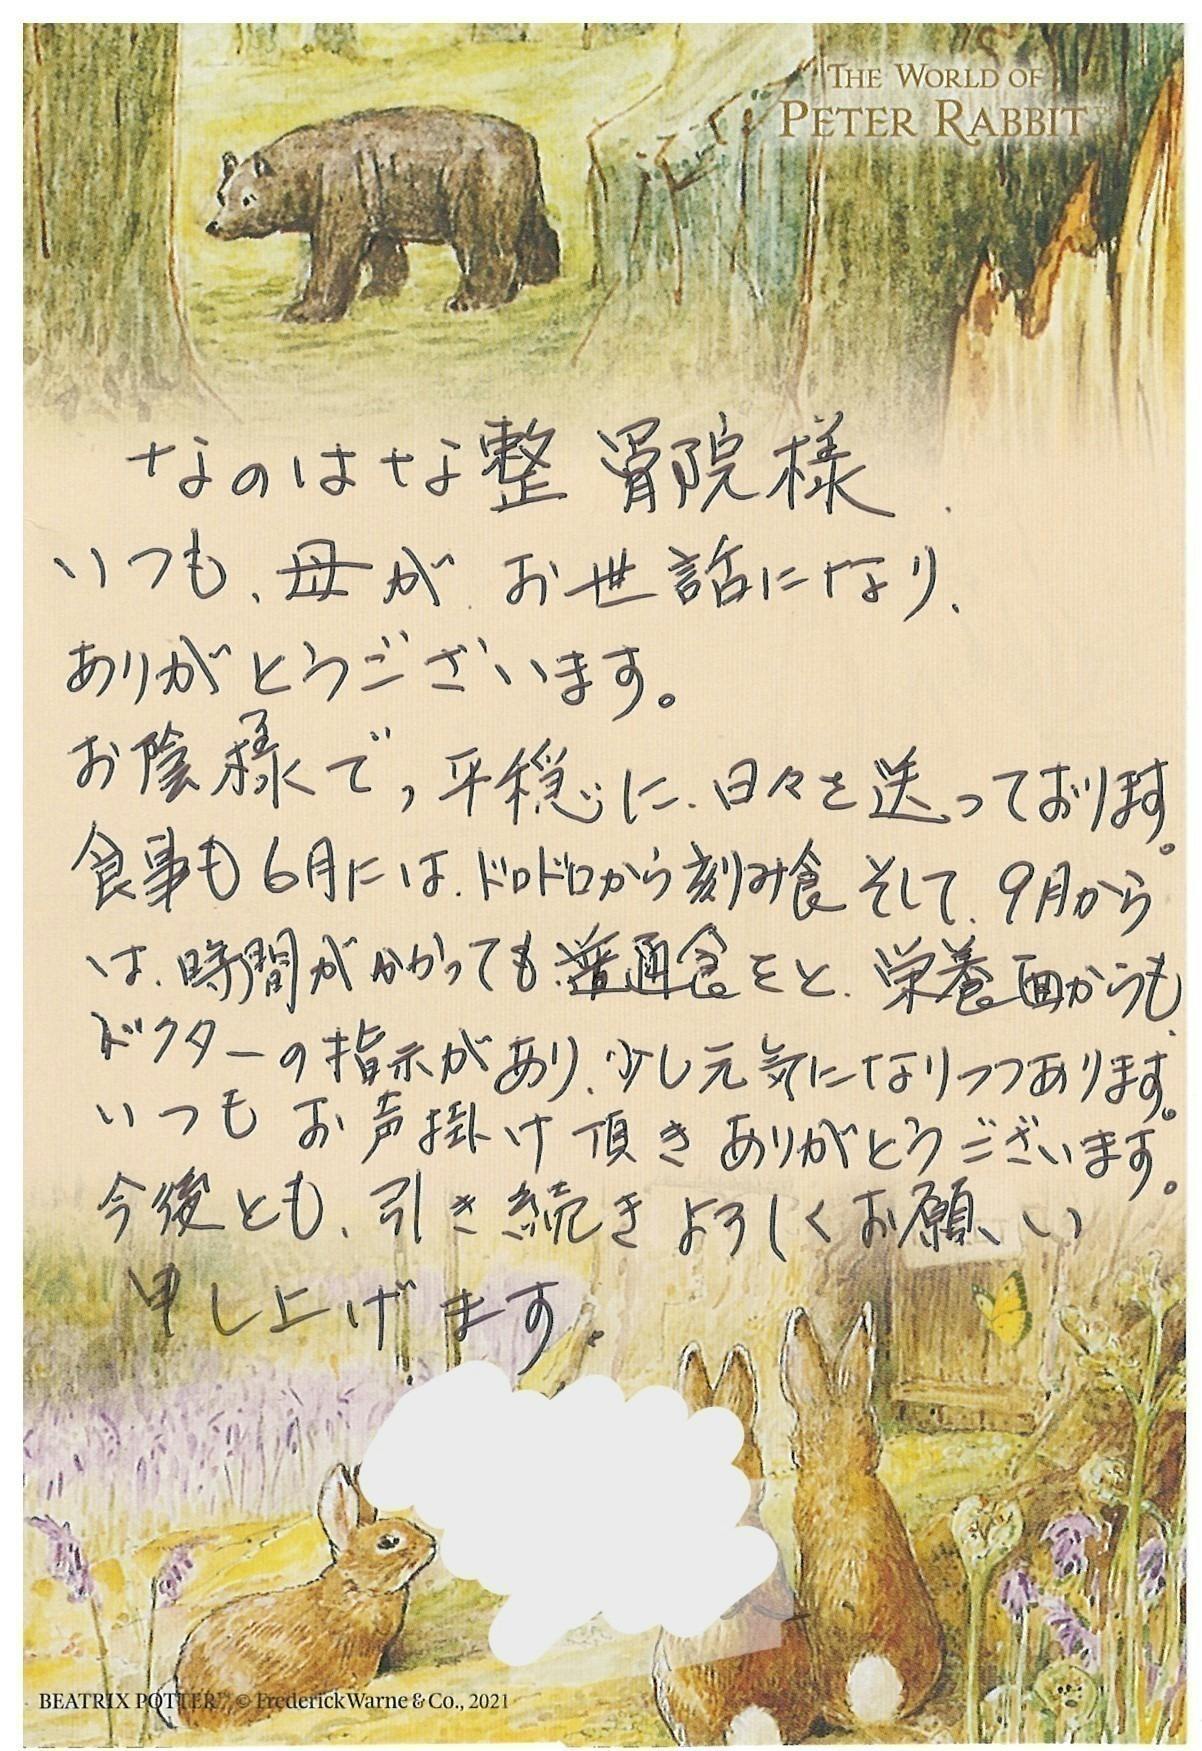 THE WORLD OF
PETER RABBIT™
なのはな整骨院様.
いつも、母が、お世話になり、
ありがとうございます。
お陰様で,平穏に、日々を送っております。
食事も6月には、ドロドロから刻み食そして、9月から
は、時間がかかっても、普通食をと、栄養面からも、
ドクターの指示があり、少し元気になりつつあります。
いつもお声掛け頂きありがとうございます。
今後とも、引き続きよろしくお願い
申し上げます.
BEATRIX POTTER™ © Frederick Warne & Co., 2021